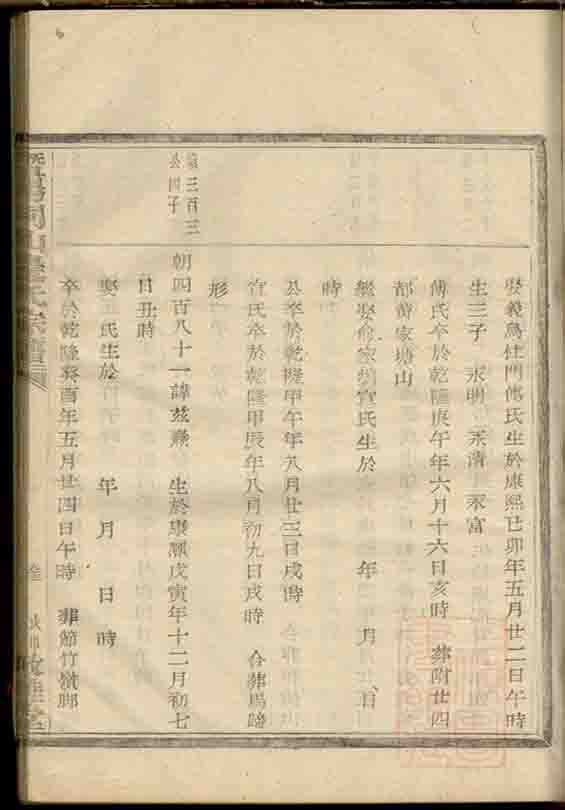 娶義烏杜門傅氏生於康熙己卯年五月廿二日午時
生三子 永明 永清 永富
傅氏卒於乾隆庚午年六月十六日亥時 葬附廿四
都黃家塘山
繼娶俞家宣氏生於 年 月 日
時
公卒於乾隆甲午年八月廿三日戌時
宣氏卒於乾隆甲辰年八月初九日戌時 合葬馬蹄
形
三百三
公四子
朝四百八十一諱茲 生於康熙戊寅年十二月初七
日丑時
娶 氏生於 年 月 日 時
卒於乾隆癸酉年五月廿四日午時 葬節竹嶺腳
宗譜